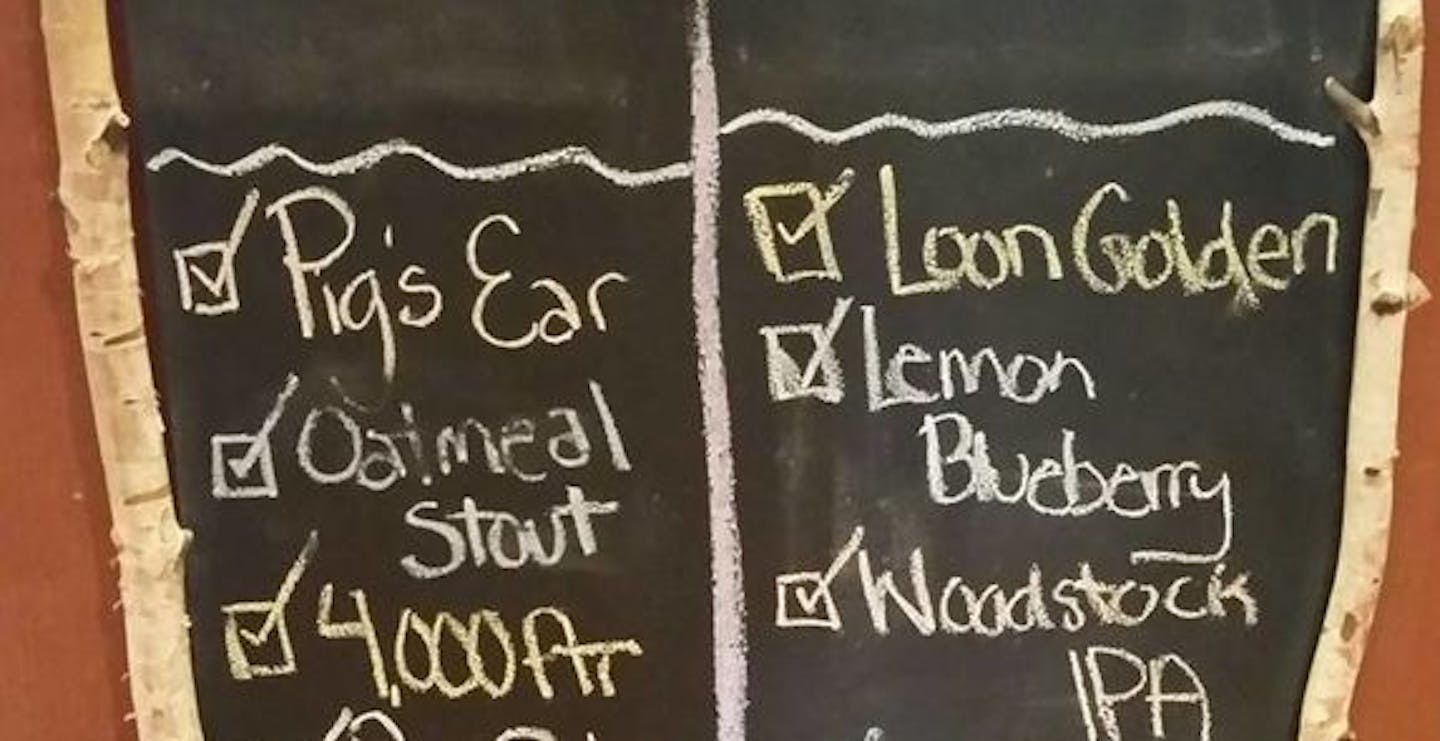 Pig's Ear
Oatmeal
Stout
4,000 ftr
Loon Golden
Lemon
Blueberry
Woodstock
IPA